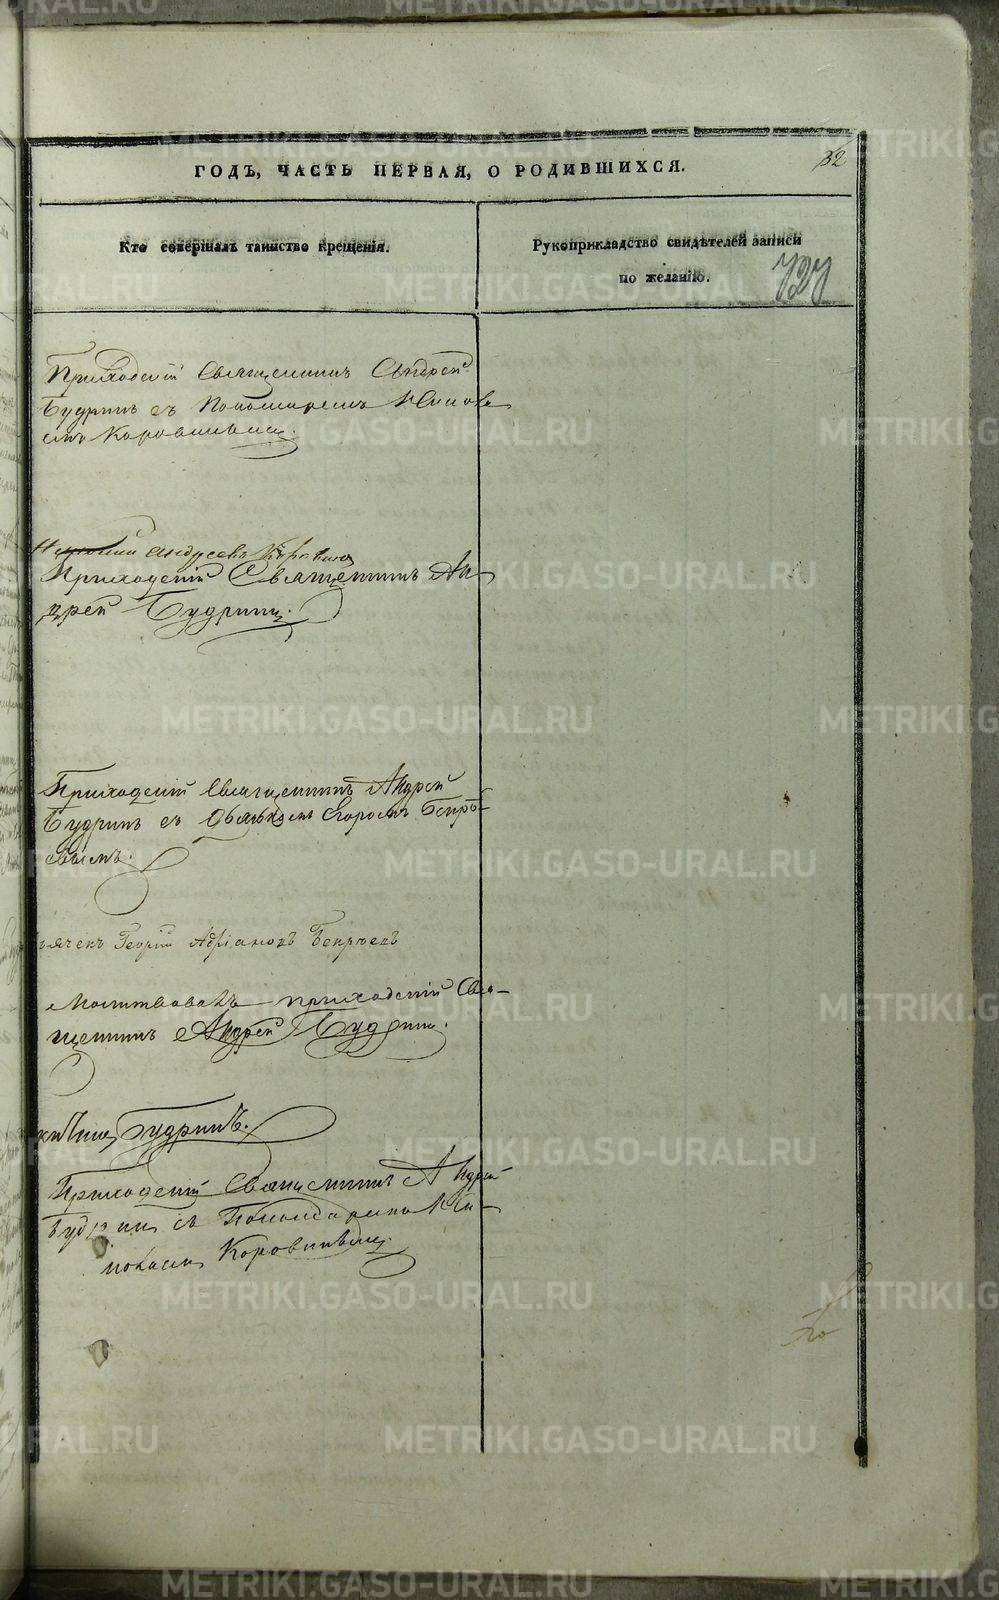 ГОДЪ, ЧАСТЬ ПЕРВАЯ, О РОДИВШИХСЯ.
32
Кто совершалъ таинство крещенія.
Рукоприкладство свидѣтелей записи
по желанію.
727
Приходскій Священникъ Андрей
Будринъ съ Пономаремъ
Коровинымъ.
Андреевъ Коровинъ
Приходскій Священникъ Ан-
дрей Будринъ.
Приходскій Священникъ Андрей
Будринъ съ Егоромъ
Георгій Адріановъ
Молитвовалъ приходскій Свя-
щенникъ Андрей Будринъ.
Будринъ.
Приходскій Священникъ Андрей
Будринъ съ Пономаремъ
Коровинымъ.
METRIKI.GASO-URAL.RU